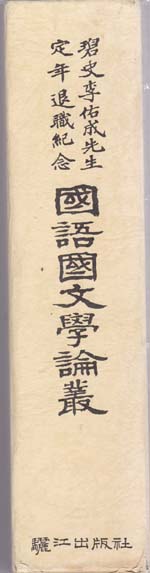 碧史李佑成先生
定年退職紀念
國語國文學論叢
驪江出版社